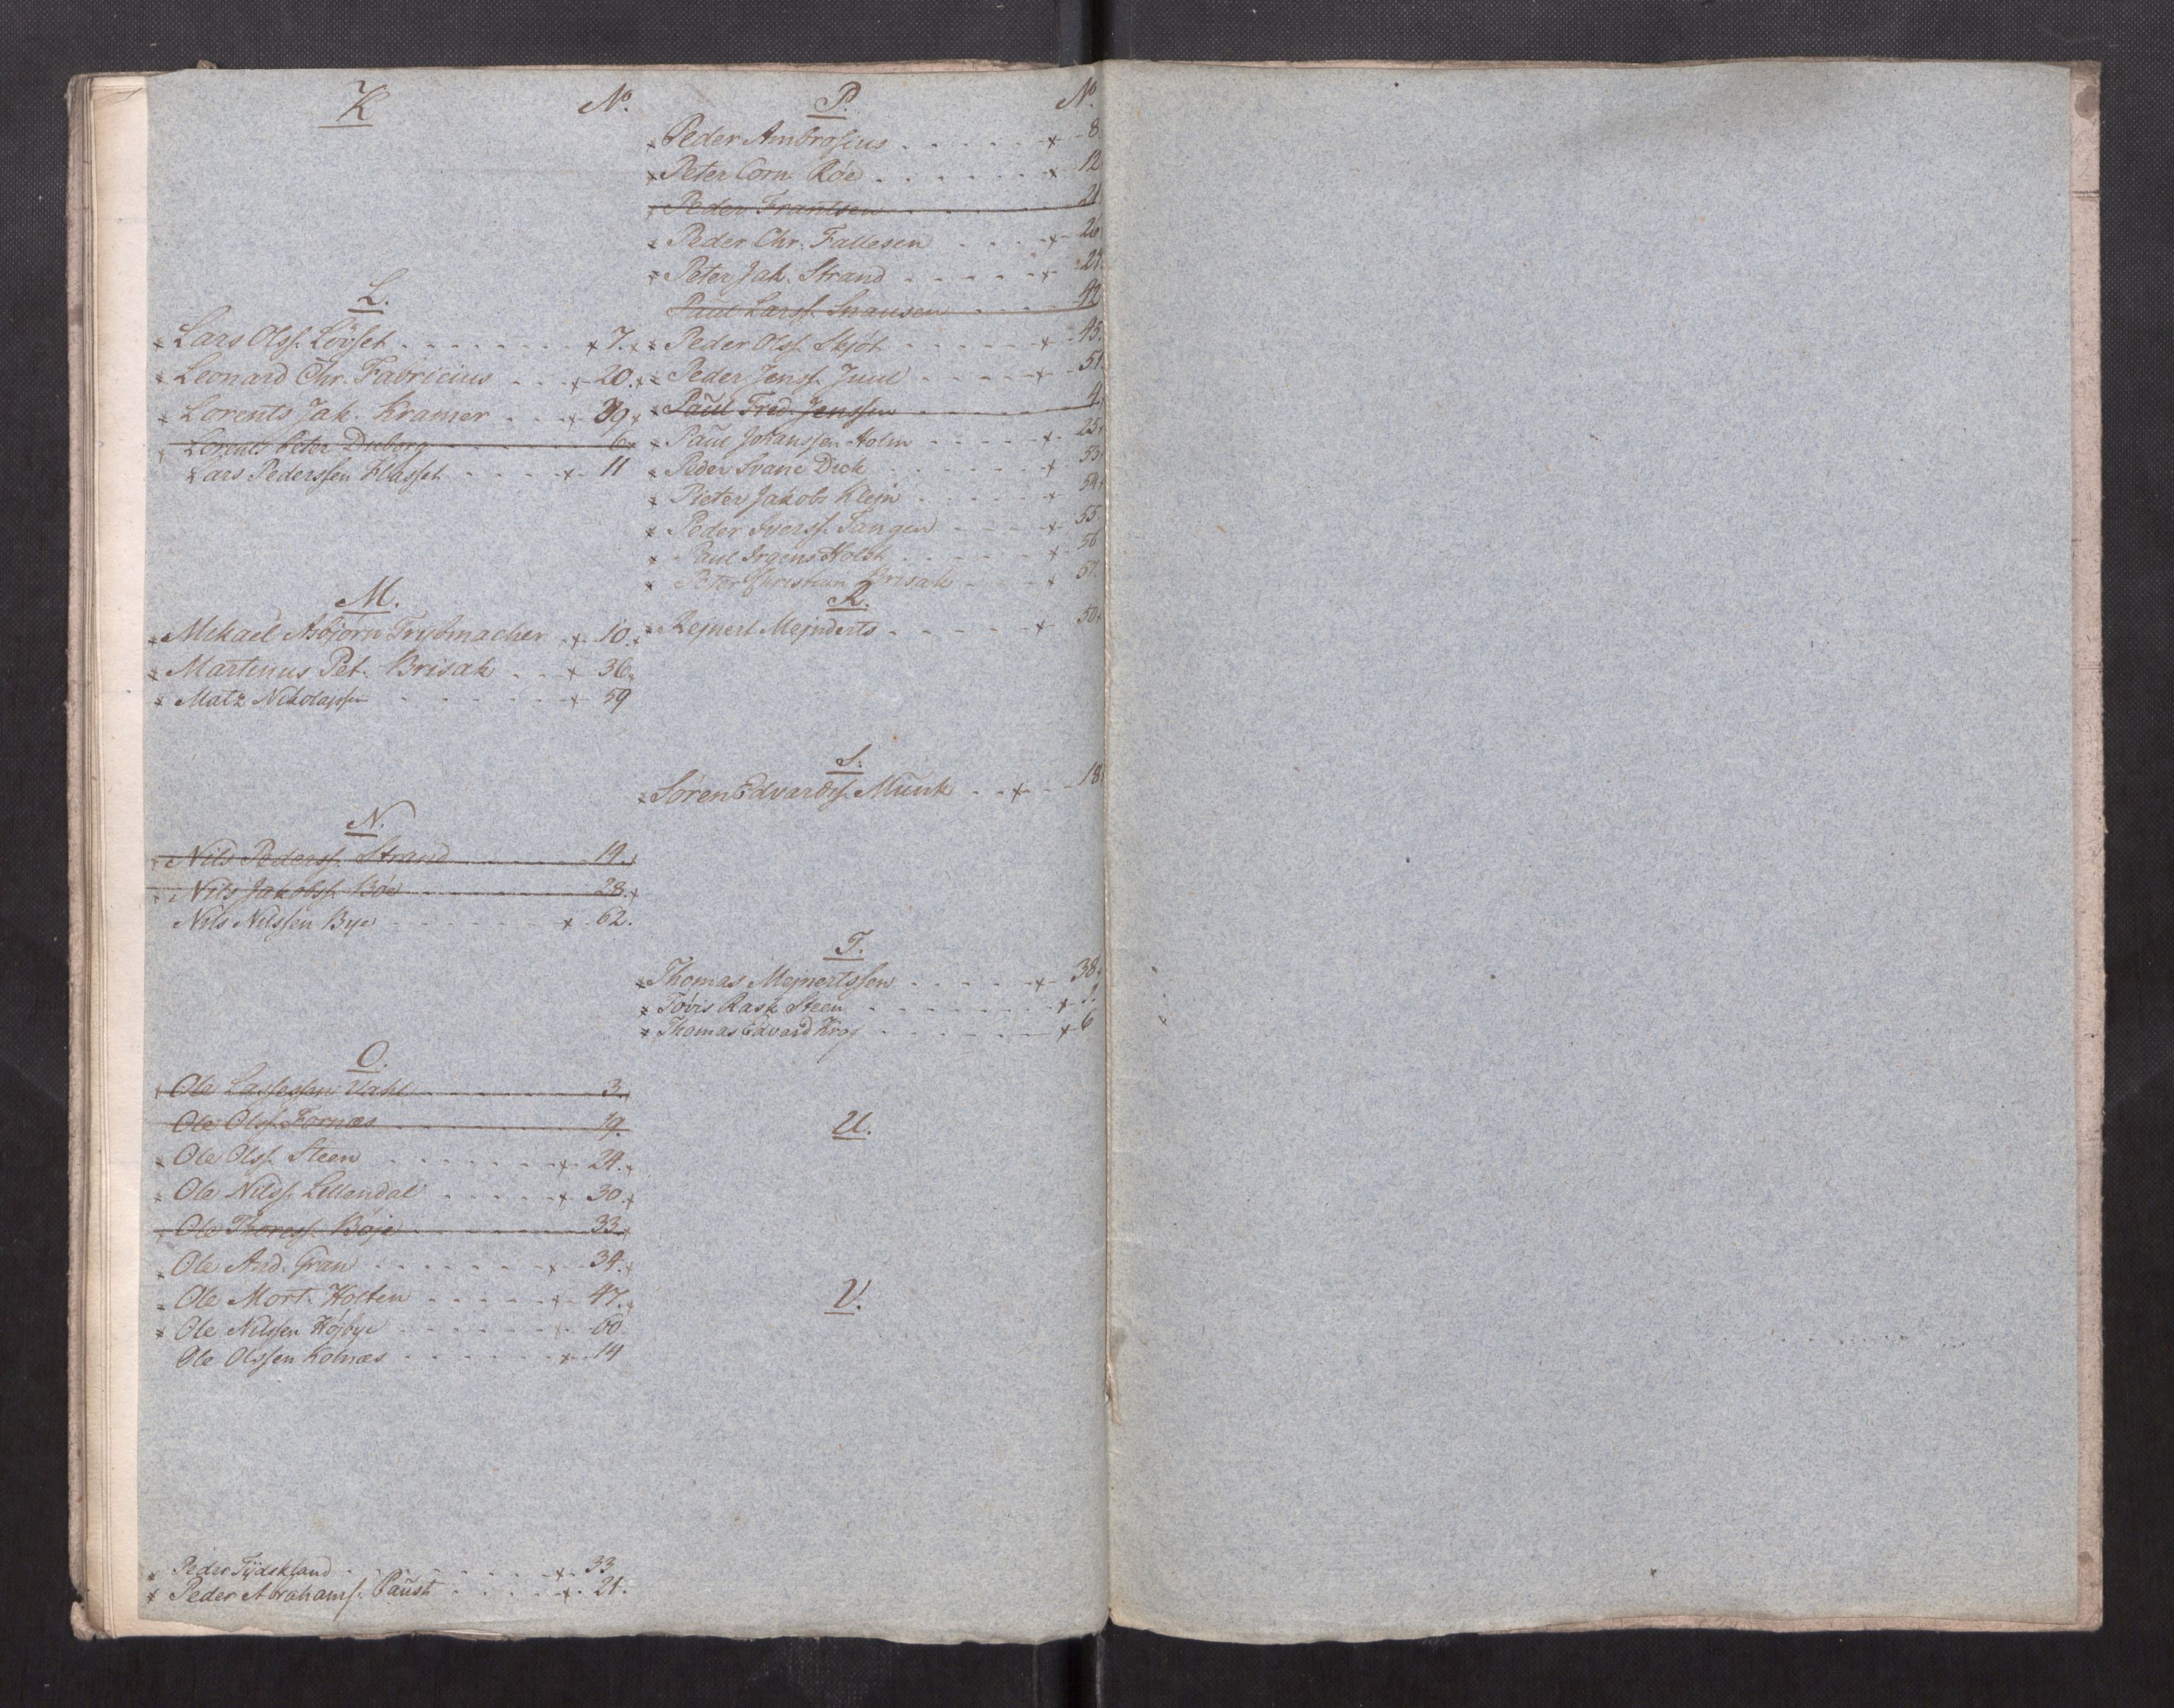 K No.
L.
Lars Olsf. Löfset 7.
Leonard Chr. Fabricius 20.
Lorents Jak. Kramer 39
Lorents Peter Duborg 6
Lars Pederssen Klasset 11
M.
Mikael Asbjørn Trybmacher 10.
Martinus Pet. Brisak 36.
Matz Nikolajssen 59
N.
Nils Pedersf. Strand 19.
Nils Jakobsf. Böe 28.
Nils Nilssen Bye 62.
O.
Ole Lassessen Vahl 3.
Ole Olsf. Fornæs 19.
Ole Olsf. Steen 24.
Ole Nilsf. Lillendal 30.
Ole Thoresf. Böje 33.
Ole And. Gran 34.
Ole Mort. Holten 47.
Ole Nilssen Högbye 60
Ole Olssen Kolnæs 14
Peder Tÿdskland 33
Peder Abrahamsf. Paust 21.
P. No.
Peder Ambrosius 8
Peter Corn. Röe 12
Peder Frantsen 21
Peder Chr. Fallesen 26
Peter Jak. Strand 27.
Paul Larsf. Snausen 42
Peder Olsf. Skjöt 45.
Peder Jensf. Juul 51
Paul Fred. Jenssen 4
Paul Johanssen Holm 25
Peder Svane Dick 53
Pieter Jakobs Klejn 54
Peder Iversf. Tangen 55
Paul Irgens Holst 56
Peter Christian Brisak 57.
R.
Rejnert Mejnderts 50
S.
Sören Edvardsf. Munk 18
T.
Thomas Mejnertssen 38
Tøvis Rask Steen 1.
Thomas Edvard Krog 6
U.
V.